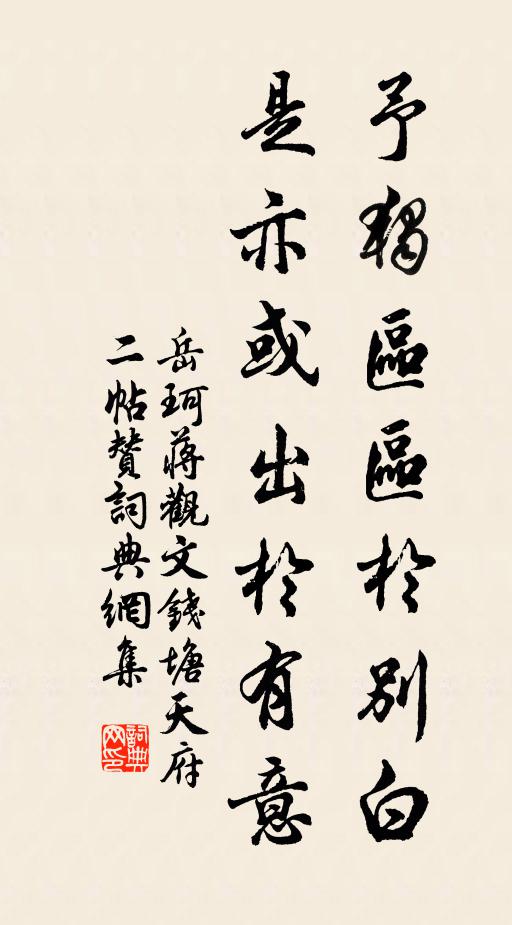 予獨區區於別白
是亦或出於有意
岳珂蔣觀文錢塘天府
二帖贊詞典網集
詞典网印